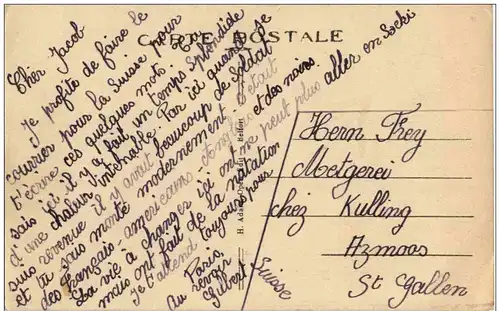 CARTE POSTALE
Cher Jacob
Je profite de faire le
courrier pour la Suisse pour
t'écrire ces quelques mots.
sais ici il y a fait un temps splendide
d'une chaleur intenable. Par ici quand je
suis revenue il y avait beaucoup de soldat
et tu sais monté modernement. C'était
des Français - américains Anglais et des noirs.
La vie à changer ici on ne peut plus aller en Sacki
mais ont fait de la natation
Je t'attend toujours pour
Paris.
Au revoir
Gilbert
Suisse
H. Adam Belfort
Hern Frey
Metgerei
chez Kulling
Azmoos
St Gallen